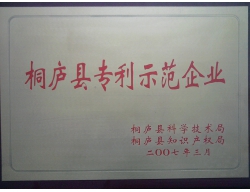 桐庐县专利示范企业
桐庐县科学技术局
桐庐县知识产权局
二〇〇七年三月